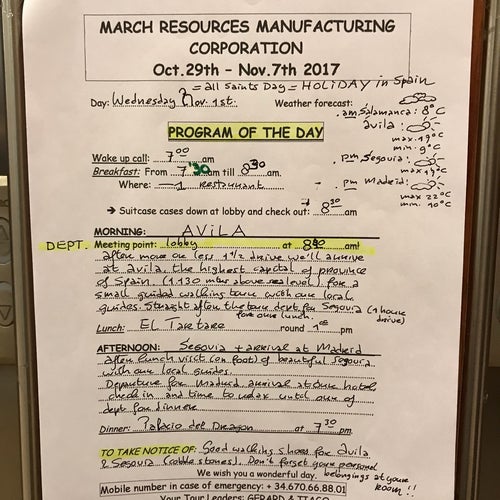 MARCH RESOURCES MANUFACTURING
CORPORATION
Oct.29th – Nov.7th 2017
= all Saints Day = HOLIDAY in Spain
Day: Wednesday Nov. 1st. Weather forecast:
am Salamanca: 8°C
PROGRAM OF THE DAY
ávila:
max. 19°C
min. 9°C
Wake up call: 7 00 am
pm Segovia:
Breakfast: From 7 30 am till 8 30 am
max 19°C
Where: -1 restaurant
- pm Madrid:
max 22°C
min. 10°C
→ Suitcase cases down at lobby and check out: 8 30 am
MORNING: AVILA
DEPT. Meeting point: lobby at 8 40 am!
after more or less 1 1/2 drive we'll arrive
at ávila, the highest capital of province
of Spain (1130 mtrs above sea level) for a
small guided walking tour with our local
guides. Straight after the tour dept. for Segovia (1 hour
drive)
for our lunch.
Lunch: EL Tartare round 1 pm
AFTERNOON: Segovia + arrival at Madrid
After lunch visit (on foot) of beautiful Segovia
with our local guides.
Departure for Madrid arrival at our hotel
check in and time to relax until our
dept for dinner
Dinner: Palacio del Dragon at 7 30 pm
TO TAKE NOTICE OF: Good walking shoes for ávila
& Segovia (cobble stones). Don't forget your personal
belongings at your
room!!
We wish you a wonderful day.
Mobile number in case of emergency: + 34.670.66.88.01
Your Tour Leaders: GERARD & TIAGO